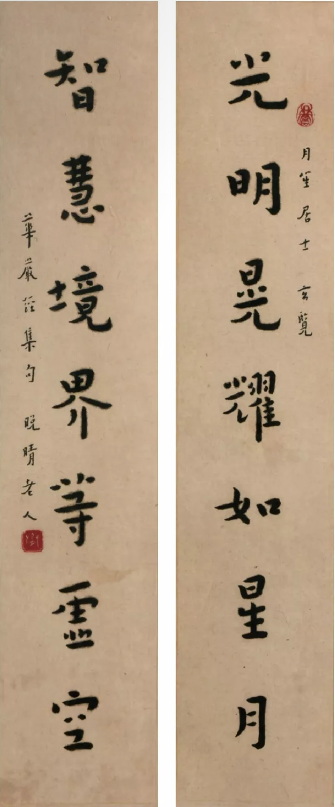 月笙居士 玄覽
光明晃耀如星月
智慧境界等虛空
華嚴經集句 晚晴老人